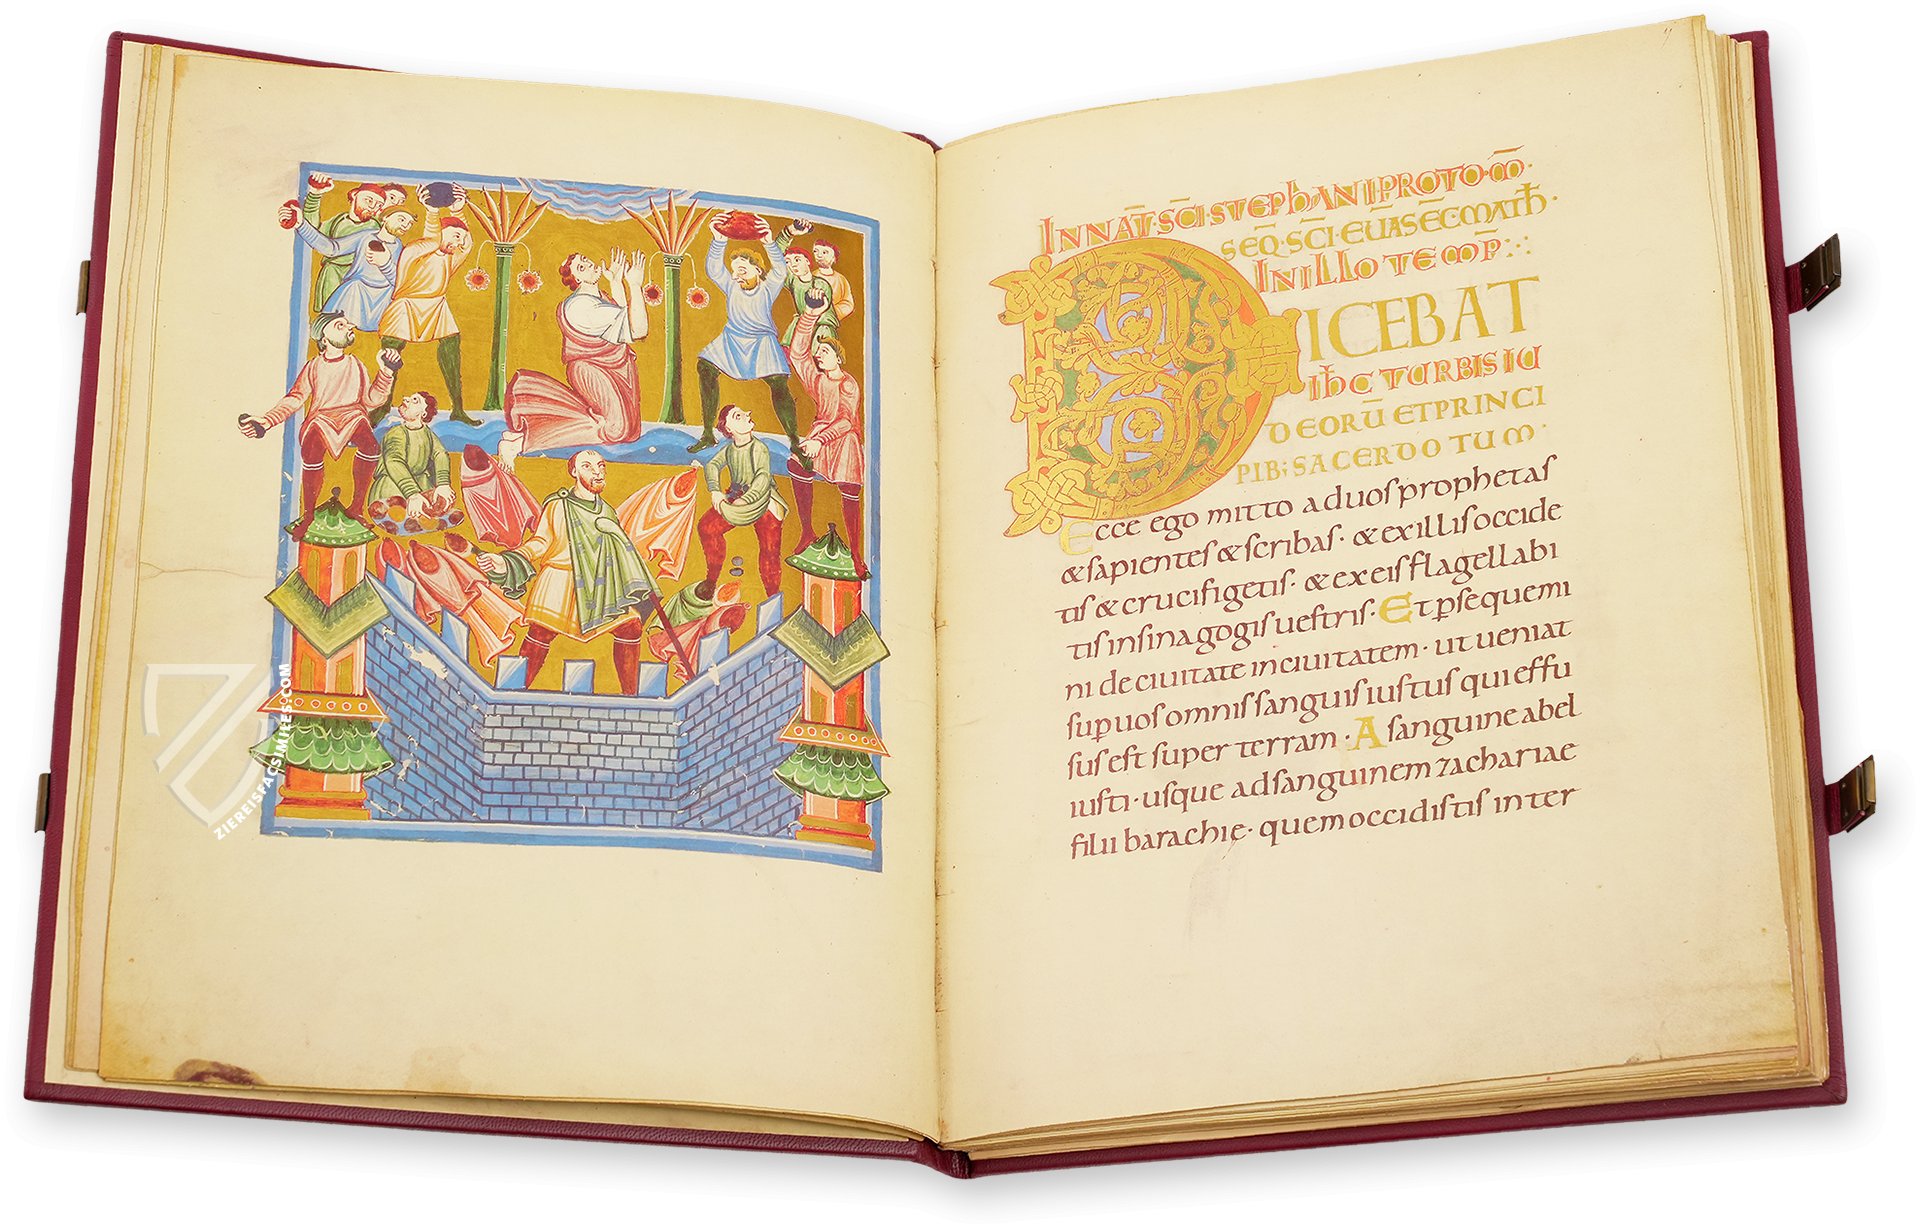 INNAT̄·SC̄I·STEPhANI PROTO·M̄·
SEQ̄·SC̄I·EVAS̄EC̄MATħ·
IN ILLO TEMP̄
DICEBAT
IħC TURBIS IU
DEORŪ ET PRINCI
PIB; SACERDOTUM·
Ecce ego mitto ad uos prophetas
& sapientes & scribas· & ex illis occide
tis & crucifigetis· & ex eis flagellabi
tis in sinagogis uestris· Et p̱sequemi
ni de ciuitate in ciuitatem· ut ueniat
sup uos omnis sanguis iustus qui effu
sus est super terram· A sanguine abel
iusti· usque ad sanguinem zachariae
filii barachie· quem occidistis inter
ZIEREISFACSIMILES.COM